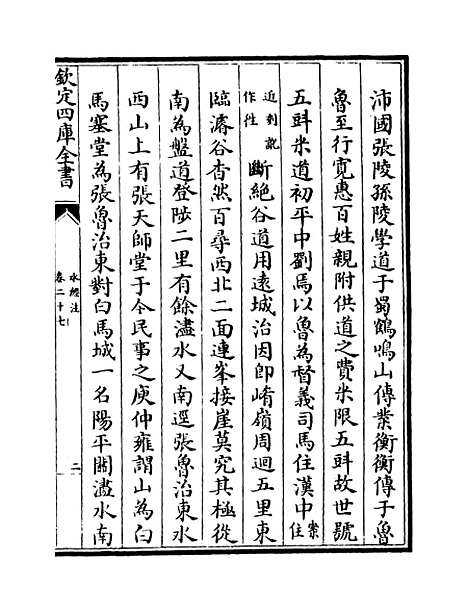 沛國張陵孫陵學道于蜀鶴鳴山傳業衡衡傳于魯
魯至行寛惠百姓親附供道之費米限五㪷故世號
五㪷米道初平中劉焉以魯為督義司馬住漢中案住
近刻訛作往斷絶谷道用逺城治因即崤嶺周迴五里東
臨濬谷杳然百尋西北二面連峯接崖莫究其極從
南為盤道登陟二里有餘濜水又南逕張魯治東水
西山上有張天師堂于今民事之庾仲雍謂山為白
馬塞堂為張魯治東對白馬城一名陽平闗濜水南
欽定四庫全書
水經注
卷二十七
二